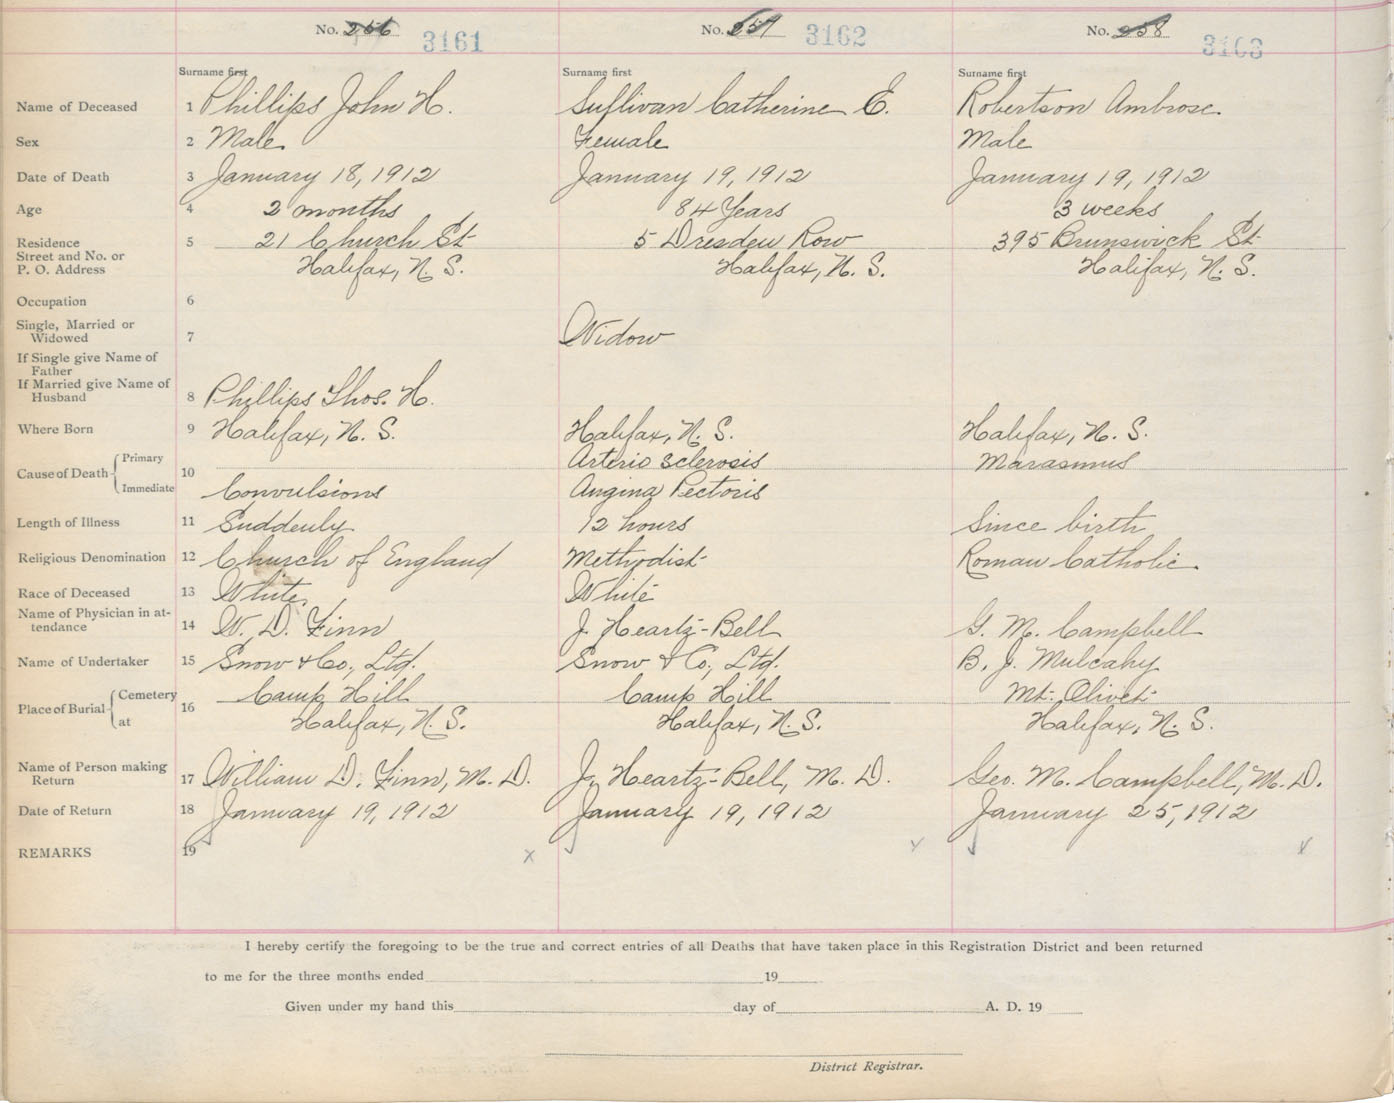 No. 256 3161
No. 257 3162
No. 258 3163
Surname first
Surname first
Surname first
Name of Deceased 1 Phillips John H. Sullivan Catherine E. Robertson Ambrose
Sex 2 Male Female Male
Date of Death 3 January 18, 1912 January 19, 1912 January 19, 1912
Age 4 2 months 84 Years 3 weeks
Residence 5 21 Church St 5 Dresden Row 395 Brunswick St
Street and No. or
P. O. Address Halifax, N. S. Halifax, N. S. Halifax, N. S.
Occupation 6
Single, Married or
Widowed 7 Widow
If Single give Name of
Father
If Married give Name of
Husband 8 Phillips Thos. H.
Where Born 9 Halifax, N. S. Halifax, N. S. Halifax, N. S.
Cause of Death Primary 10 Arterio Sclerosis Marasmus
Immediate Convulsions Angina Pectoris
Length of Illness 11 Suddenly 12 hours Since birth
Religious Denomination 12 Church of England Methodist Roman Catholic
Race of Deceased 13 White White
Name of Physician in at-
tendance 14 W. D. Finn J. Heartz-Bell G. M. Campbell
Name of Undertaker 15 Snow & Co., Ltd. Snow & Co., Ltd. B. J. Mulcahy
Place of Burial Cemetery 16 Camp Hill Camp Hill Mt. Olivet
at Halifax, N. S. Halifax, N. S. Halifax, N. S.
Name of Person making
Return 17 William D. Finn, M. D. J. Heartz-Bell, M. D. Geo. M. Campbell, M. D.
Date of Return 18 January 19, 1912 January 19, 1912 January 25, 1912
REMARKS 19
I hereby certify the foregoing to be the true and correct entries of all Deaths that have taken place in this Registration District and been returned
to me for the three months ended 19
Given under my hand this day of A. D. 19
District Registrar.